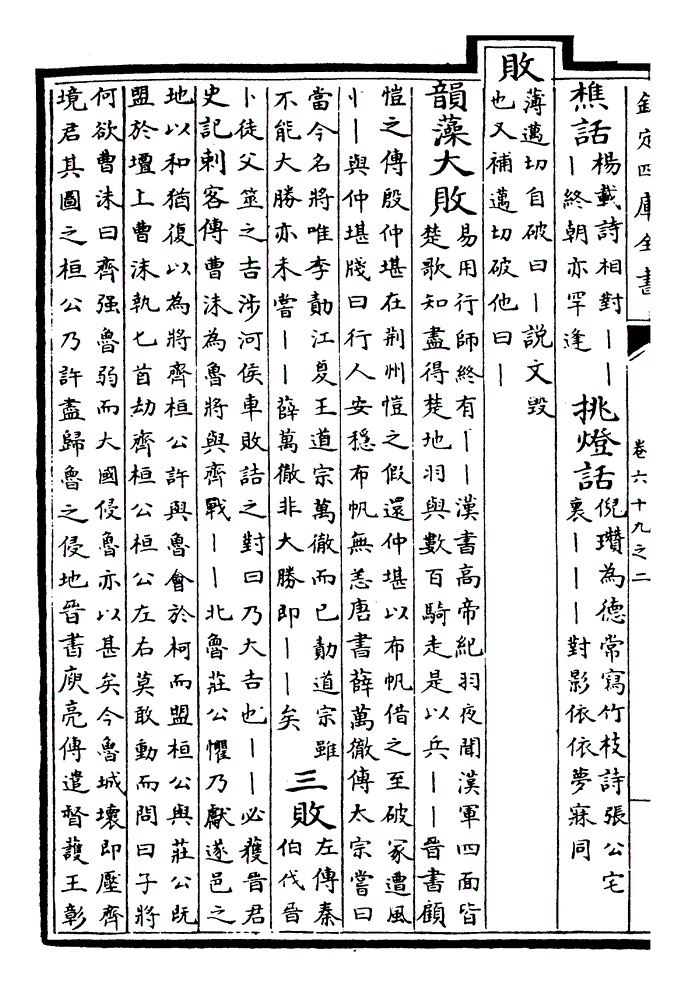 欽定四庫全書
卷六十九之二
樵話
楊載詩相對丨丨
丨終朝亦罕逢
挑燈話
倪瓚為德常寫竹枝詩張公宅
裏丨丨丨對影依依夢寐同
敗
薄邁切自破曰丨説文毁
也又補邁切破他曰丨
韻藻大敗
易用行師終有丨丨漢書高帝紀羽夜聞漢軍四面皆
楚歌知盡得楚地羽與數百騎走是以兵丨丨晉書顧
愷之傳殷仲堪在荆州愷之假還仲堪以布帆借之至破冢遭風
丨丨與仲堪牋曰行人安穩布帆無恙唐書薛萬徹傳太宗嘗曰
當今名將唯李勣江夏王道宗萬徹而已勣道宗雖
不能大勝亦未嘗丨丨薛萬徹非大勝即丨丨矣
三敗
左傳秦
伯伐晉
卜徒父筮之吉涉河侯車敗詰之對曰乃大吉也丨丨必獲晉君
史記刺客傳曹沫為魯將與齊戰丨丨北魯莊公懼乃獻遂邑之
地以和猶復以為將齊桓公許與魯會於柯而盟桓公與莊公既
盟於壇上曹沫執匕首劫齊桓公桓公左右莫敢動而問曰子將
何欲曹沫曰齊强魯弱而大國侵魯亦以甚矣今魯城壞即壓齊
境君其圖之桓公乃許盡歸魯之侵地晉書庾亮傳遣督護王彰